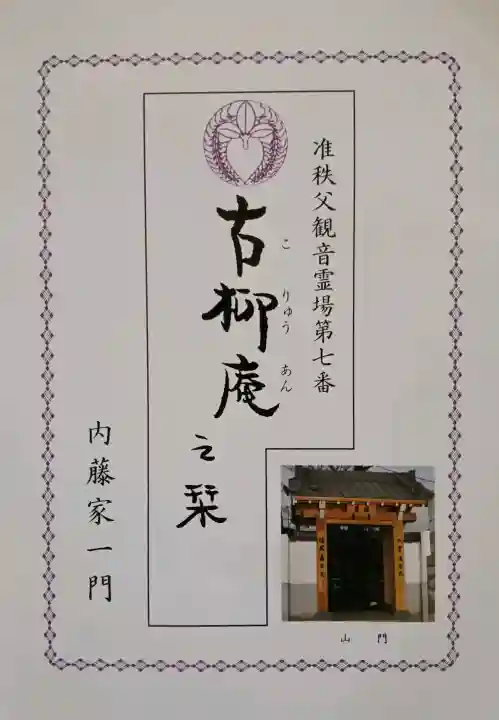 准秩父観音霊場第七番
古柳庵之栞
こりゅうあん
内藤家一門
山門